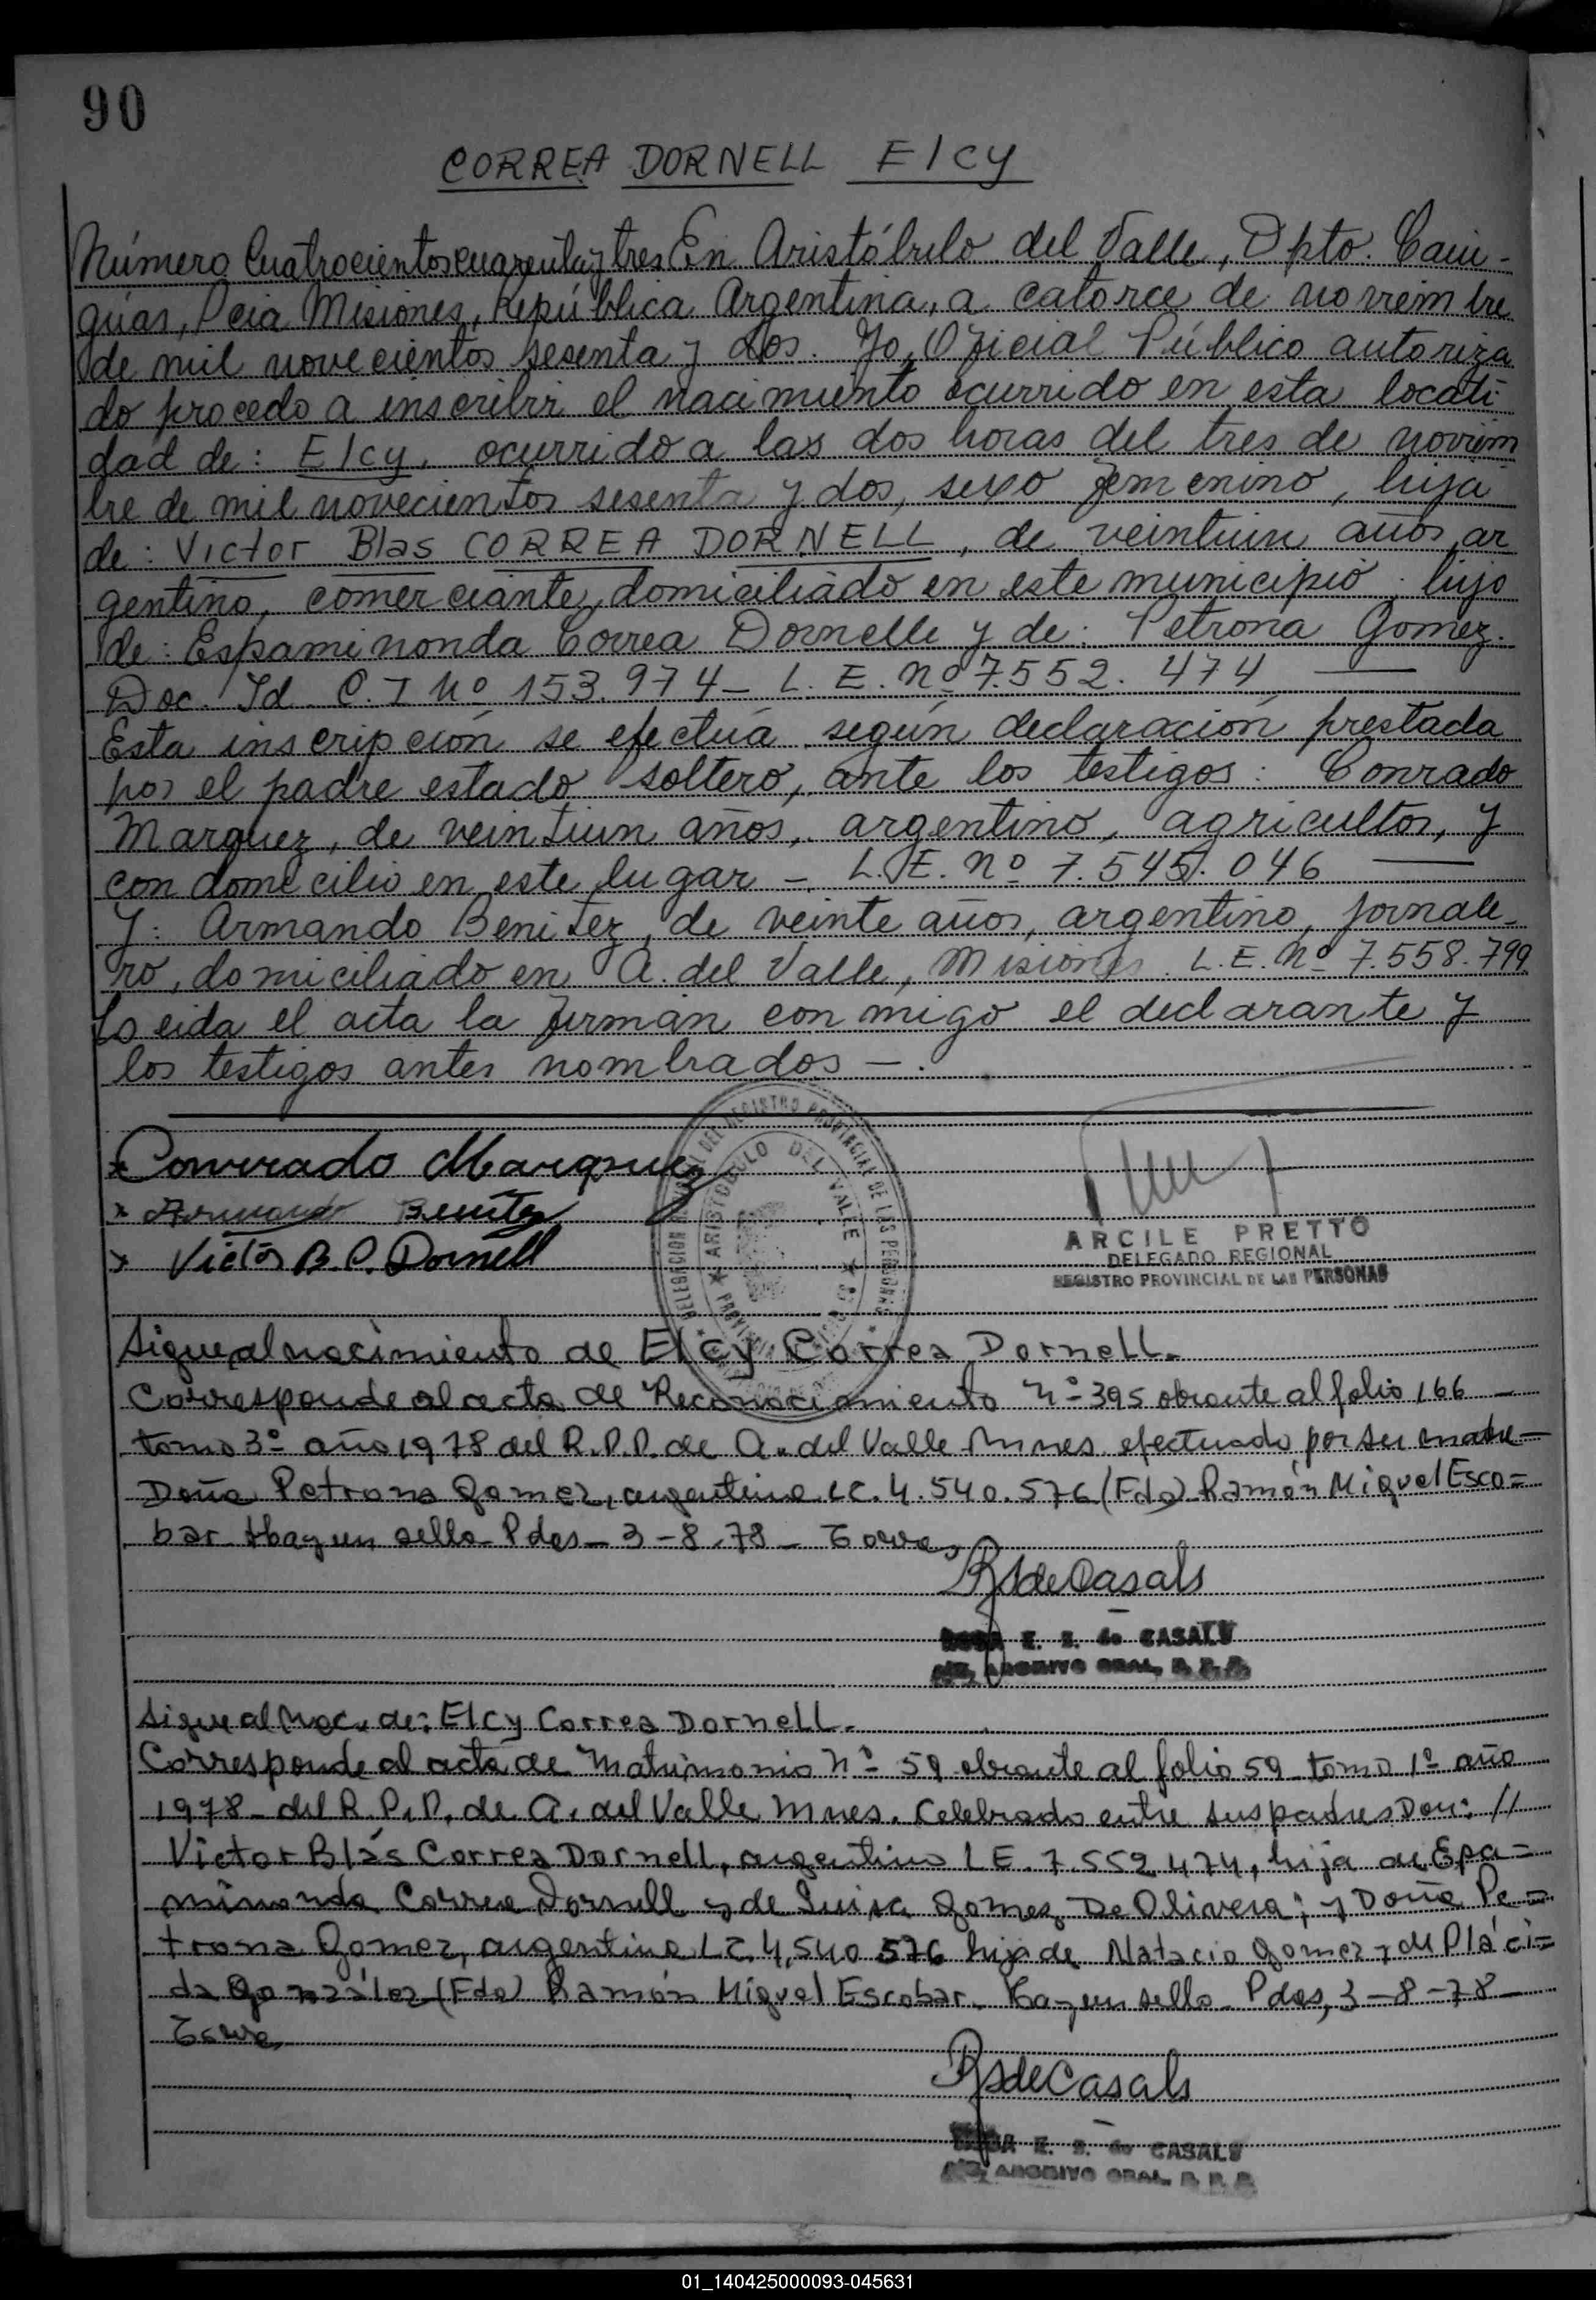 90
CORREA DORNELL Elcy
Número Cuatrocientos cuarenta y tres En Aristóbulo del Valle, Dpto. Cain-
guás, Pcia Misiones, República Argentina, a catorce de noviembre
de mil novecientos sesenta y dos. Yo, Oficial Público autoriza
do procedo a inscribir el nacimiento ocurrido en esta locali-
dad de: Elcy, ocurrido a las dos horas del tres de noviem
bre de mil novecientos sesenta y dos, sexo femenino, hija
de: Victor Blas CORREA DORNELL, de veintiun años, ar
gentino, comerciante, domiciliado en este municipio, hijo
de: Espaminonda Correa Dornelle y de: Petrona Gomez.
Doc. Id. C. I Nº 153.974 - L. E. nº 7.552.474
Esta inscripción se efectúa según declaración prestada
por el padre estado soltero, ante los testigos: Conrado
Marquez, de veintiun años, argentino, agricultor, y
con domicilio en este lugar - L. E. nº 7.545.046
Y: Armando Benitez, de veinte años, argentino, jornale-
ro, domiciliado en A. del Valle, Misiones. L.E. Nº 7.558.799
Leida el acta la firman conmigo el declarante y
los testigos antes nombrados -.
x Conrrado Marquez
x Armando Benitez
x Victor B. C. Dornell
DELEGACION REGIONAL DEL REGISTRO PROVINCIAL DE LAS PERSONAS
ARISTOBULO DEL VALLE
ARCILE PRETTO
DELEGADO REGIONAL
REGISTRO PROVINCIAL DE LAS PERSONAS
Sigue al nacimiento de Elcy Correa Dornell.
Corresponde al acta de Reconocimiento nº 395 obrante al folio 166 -
tomo 3º año 1978 del R.P.P. de A. del Valle Mnes. efectuado por su madre -
Doña Petrona Gomez, argentina LC. 4.540.576 (Fdo) Ramón Miguel Esco=
bar. Hay un sello - Pdas - 3-8-78 -
RSdeCasals
E. S. de CASALS
ARCHIVO GRAL. R. P. P.
Sigue al Nac. de: Elcy Correa Dornell.
Corresponde al acta de Matrimonio nº 59 obrante al folio 59 tomo 1º año
1978 - del R. P. P. de A. del Valle Mnes. Celebrado entre sus padres Don: //
Victor Blás Correa Dornell, argentino LE. 7.552.474, hijo de Epa=
minonda Correa Dornell y de Luisa Gomez De Olivera; y Doña Pe=
trona Gomez, argentina LC. 4,540 576 hija de Natacio Gomez y de Pláci=
da González (Fdo) Ramón Miguel Escobar. Hay un sello - Pdas, 3-8-78 -
RSdeCasals
E. S. de CASALS
ARCHIVO GRAL. R. P. P.
01_140425000093-045631